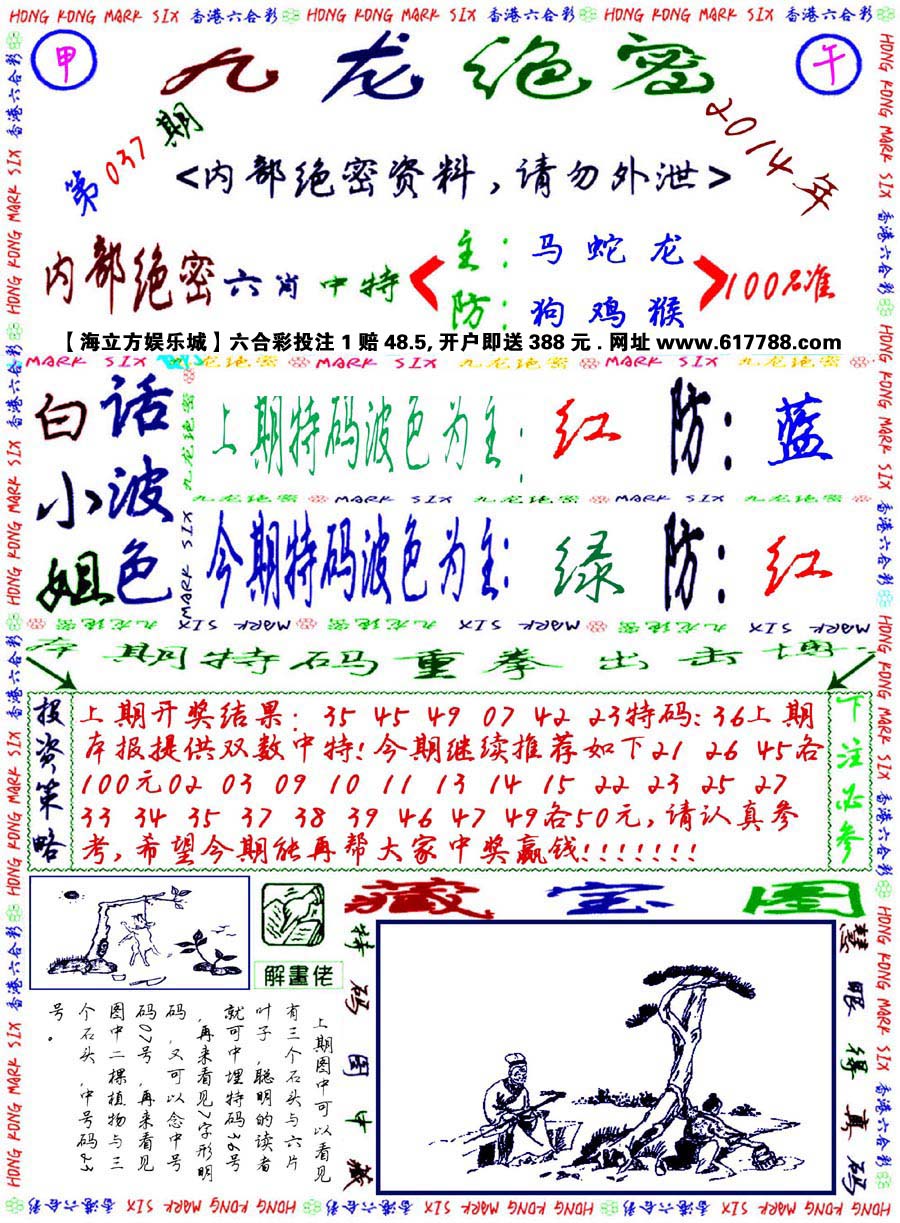 HONG KONG MARK SIX 香港六合彩 HONG KONG MARK SIX 香港六合彩 HONG KONG MARK SIX 香港六合彩
甲 九龙绝密 午
第037期
2014年
<内部绝密资料,请勿外泄>
内部绝密六肖中特
主:马 蛇 龙
防:狗 鸡 猴
100%准
【海立方娱乐城】六合彩投注 1 赔 48.5, 开户即送 388 元 . 网址 www.617788.com
MARK SIX 九龙绝密 MARK SIX 九龙绝密 MARK SIX 九龙绝密
白话
小波
姐色
上期特码波色为主:红 防:蓝
九龙绝密 MARK SIX 九龙绝密 MARK SIX 九龙绝密
今期特码波色为主:绿 防:红
MARK SIX 九龙绝密 MARK SIX 九龙绝密 MARK SIX 九龙绝密 MARK SIX
本期特码重拳出击博
投资策略
上期开奖结果: 35 45 49 07 42 23特码:36上期
本报提供双数中特!今期继续推荐如下21 26 45各
100元02 03 09 10 11 13 14 15 22 23 25 27
33 34 35 37 38 39 46 47 49各50元,请认真参
考,希望今期能再帮大家中奖赢钱!!!!!!!
下注必参
解畫佬
藏宝图
特码图中藏
慧眼得真码
上期图中可以看见
有三个石头与六片
叶子,聪明的读者
就可中埋特码36号
,再来看见7字形明
码,又可以念中号
码07号,再来看见
图中二棵植物与三
个石头,中号码23
号。
HONG KONG MARK SIX 香港六合彩 HONG KONG MARK SIX 香港六合彩 HONG KONG MARK SIX 香港六合彩